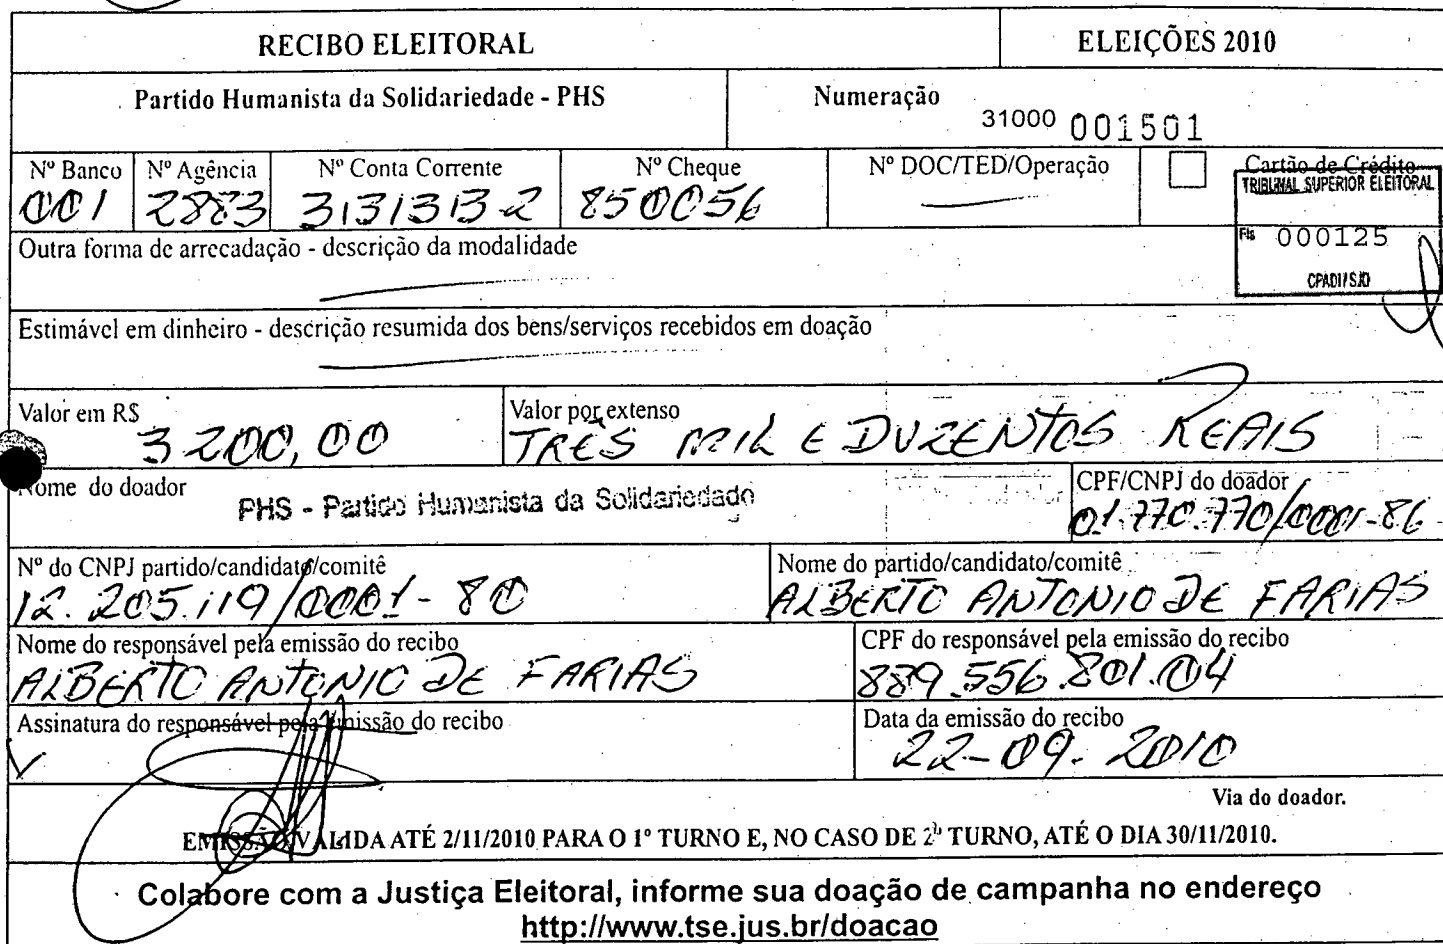 RECIBO ELEITORAL ELEIÇÕES 2010
Partido Humanista da Solidariedade - PHS Numeração
31000 001501
Nº Banco Nº Agência Nº Conta Corrente Nº Cheque Nº DOC/TED/Operação Cartão de Crédito
001 2883 313131313-2 850056
TRIBUNAL SUPERIOR ELEITORAL
Fls 000125
CPADI/SJD
Outra forma de arrecadação - descrição da modalidade
Estimável em dinheiro - descrição resumida dos bens/serviços recebidos em doação
Valor em R$ Valor por extenso
3200,00 TRÊS MIL E DUZENTOS REAIS
Nome do doador CPF/CNPJ do doador
PHS - Partido Humanista da Solidariedade 01.770.770/0001-86
Nº do CNPJ partido/candidato/comitê Nome do partido/candidato/comitê
12.205.119/0001-80 ALBERTO ANTONIO DE FARIAS
Nome do responsável pela emissão do recibo CPF do responsável pela emissão do recibo
ALBERTO ANTONIO DE FARIAS 889.556.801.04
Assinatura do responsável pela emissão do recibo Data da emissão do recibo
22-09.2010
Via do doador.
EMISSÃO VÁLIDA ATÉ 2/11/2010 PARA O 1º TURNO E, NO CASO DE 2º TURNO, ATÉ O DIA 30/11/2010.
Colabore com a Justiça Eleitoral, informe sua doação de campanha no endereço
http://www.tse.jus.br/doacao